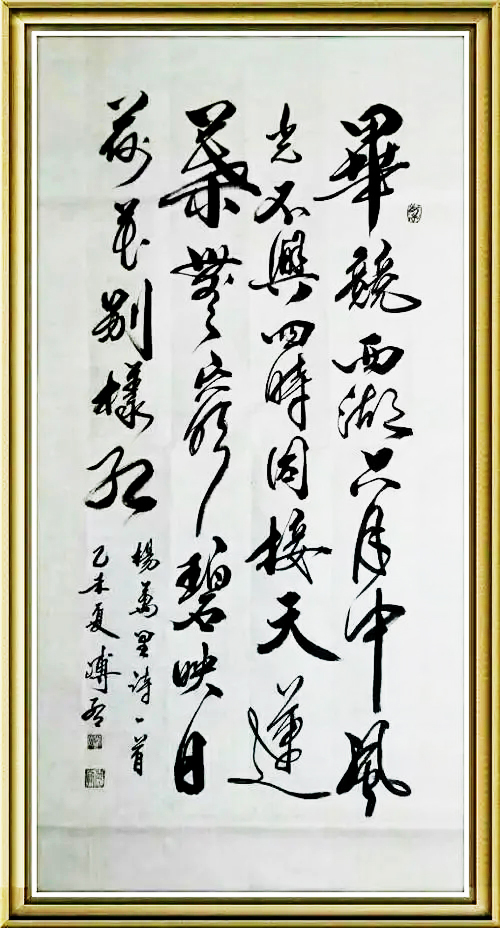 畢競西湖六月中風
光不與四時同接天蓮
葉無窮碧映日
荷花別樣紅
楊萬里詩一首
乙未夏